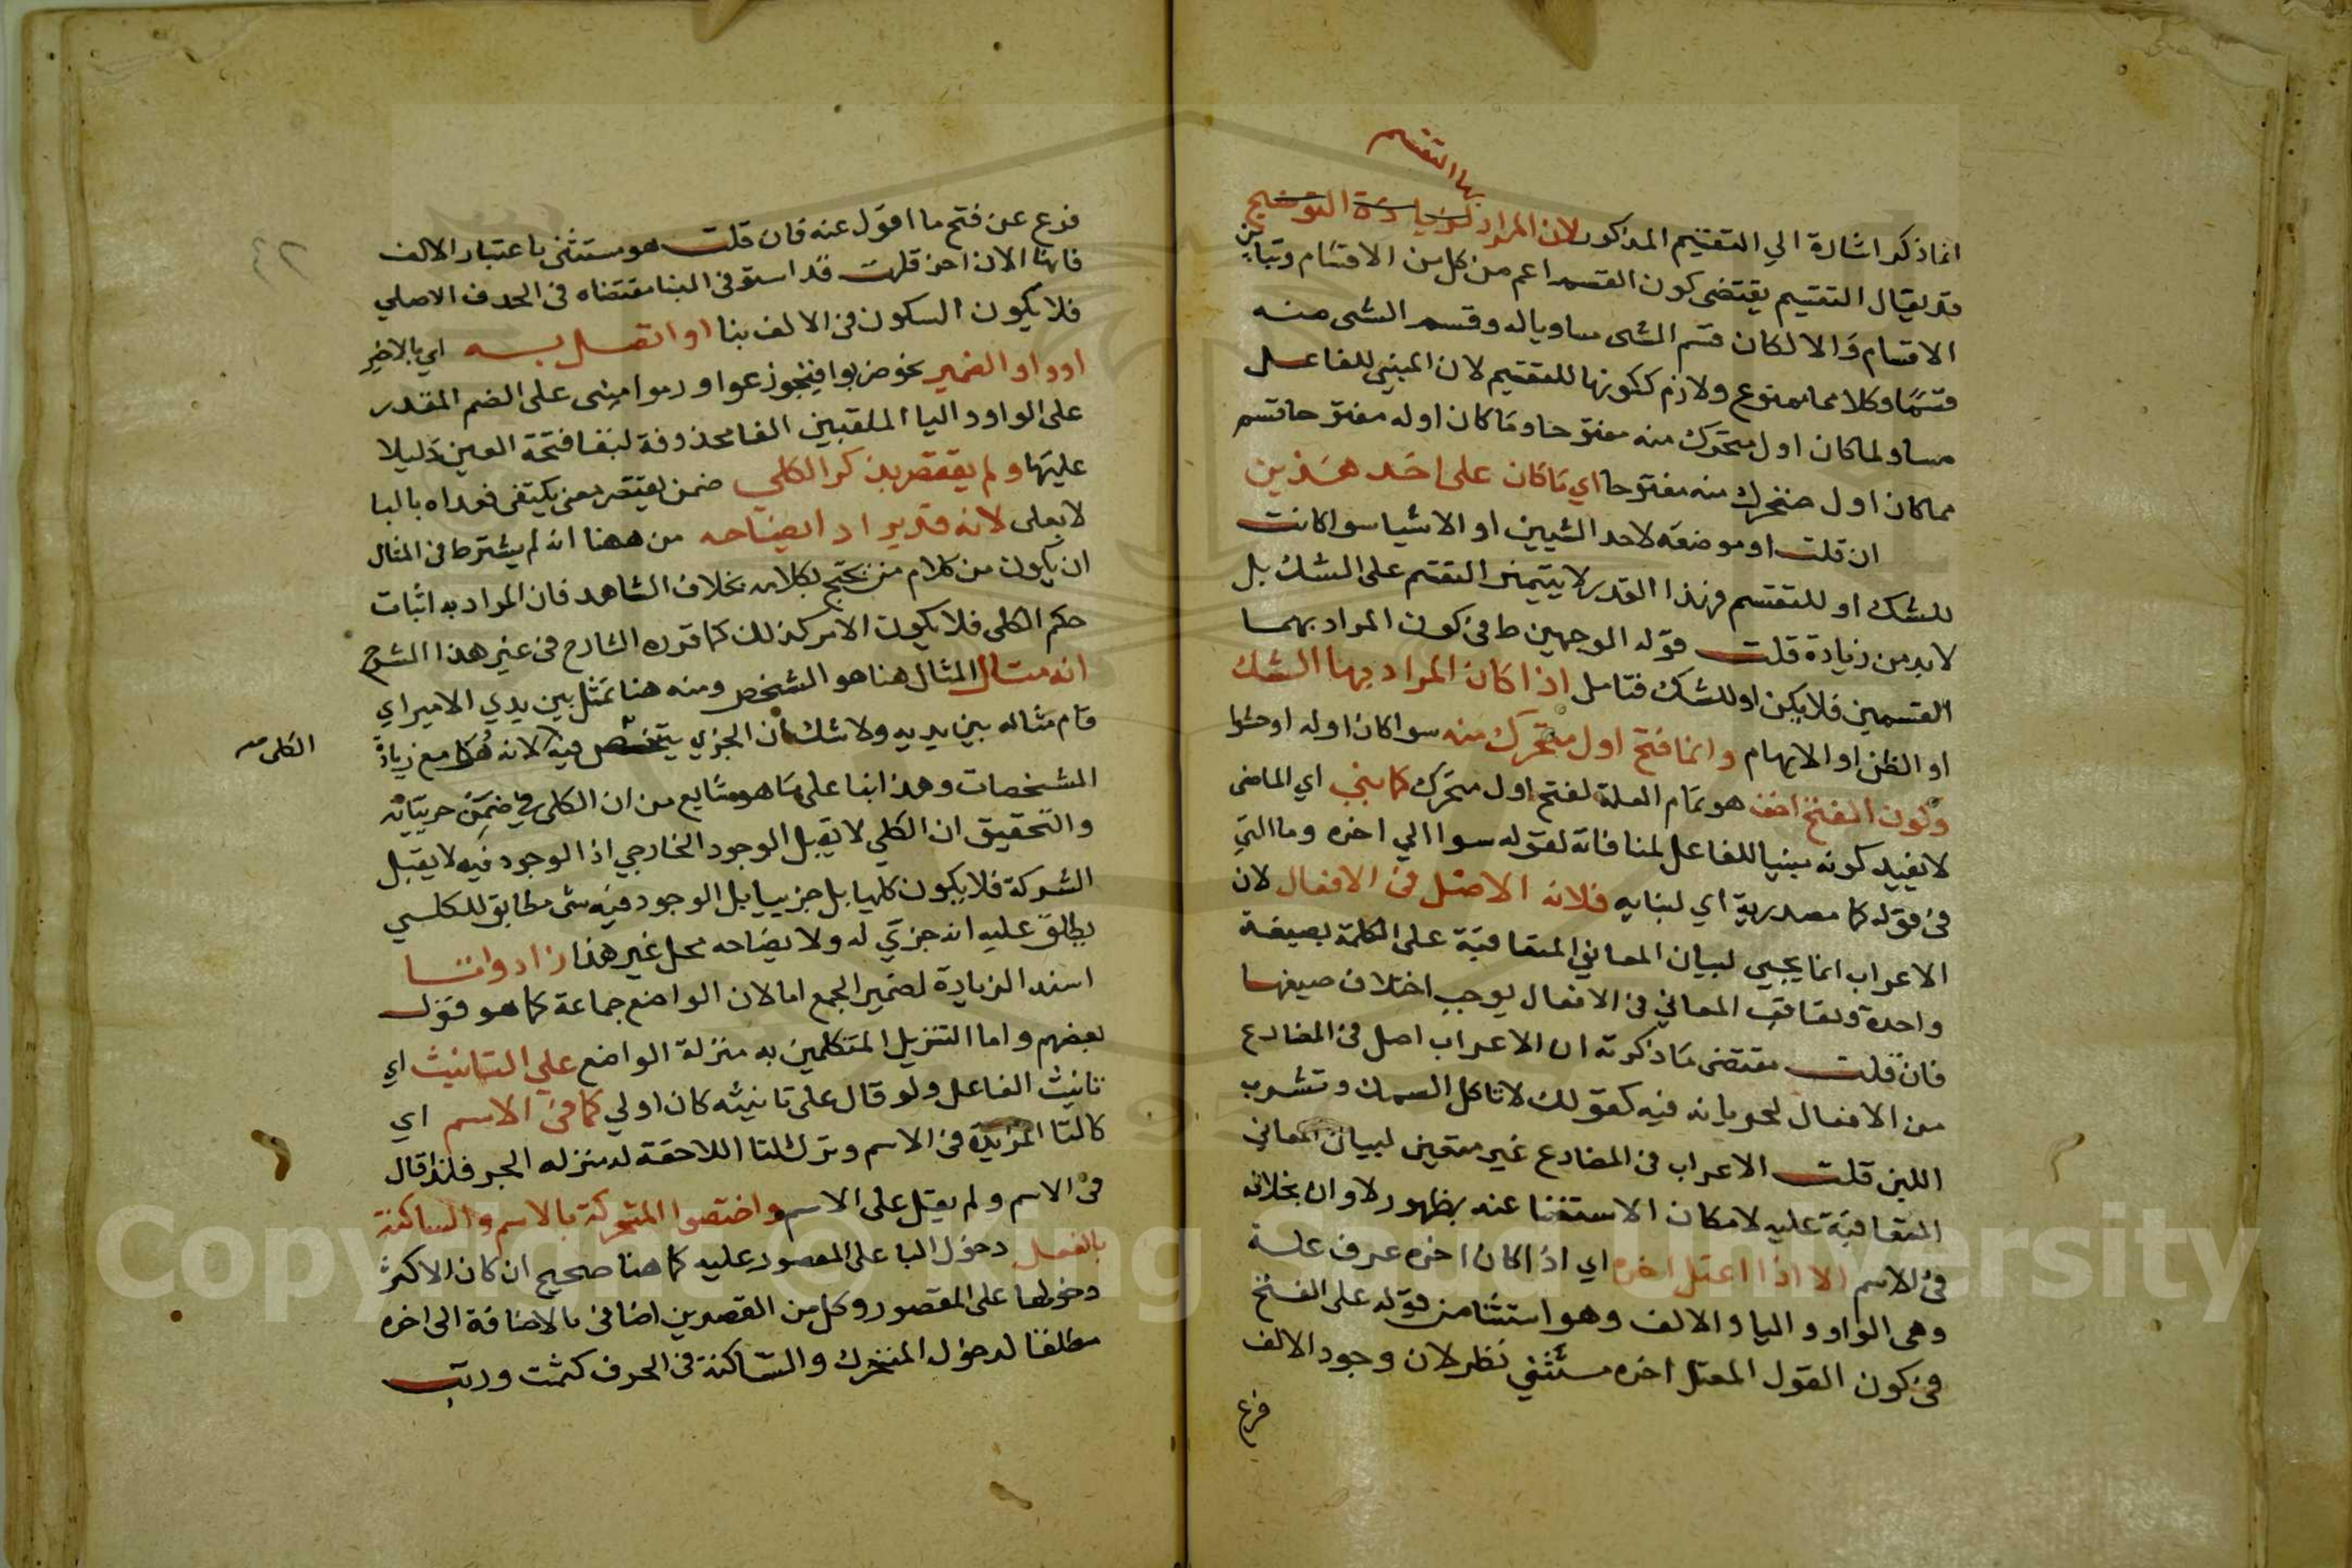 بها التقسيم
انما ذكر اشارة الي التقسيم المذكور لان المراد لزيادة التوضيح
قد يقال التقسيم يقتضى كون القسم اعم من كل من الاقسام وتباين
الاقسام والا لكان قسم الشى مساويا له وقسم الشى منه
قسمًا وكلاهما ممنوع ولازم ككونها للتقسيم لان المبني للفاعل
مساو لما كان اول متحرك منه مفتوحا وما كان اوله مفتوحا قسم
مما كان اول متحرك منه مفتوحا اي ما كان على احد هذين
ان قلت او موضعه لاحد الشيين او الاشيا سوا كانت
للشك او للتقسيم فهذا القدر لا يتميز التقسم على الشك بل
لا بد من زيادة قلت قوله الوجهين ط فى كون المراد بهما
القسمين فلا يكن او للشك فتامل اذا كان المراد بها الشك
او الظن او الابهام وانما فتح اول متحرك منه سوا كان اوله او حشوا
وكون الفتح اخف هو تمام العلة لفتح اول متحرك كما بني اي الماضى
لا يفيد كونه مبنيا للفاعل لمنافاته لقوله سوا الي اخره وما التي
فى قوله كما مصدرية اي لبنايه فلانه الاصل فى الافعال لان
الاعراب انما يجيى لبيان المعاني المتعاقبة على الكلمة بصيغة
واحدة وتعاقب المعاني فى الافعال يوجب اختلاف صيغها
فان قلت مقتضى ما ذكرته ان الاعراب اصل فى المضارع
من الافعال لجريانه فيه كقولك لا تاكل السمك وتشرب
اللبن قلت الاعراب فى المضارع غير متعين لبيان المعاني
المتعاقبة عليه لامكان الاستغنا عنه بظهور لا وان بخلافه
فى الاسم الا اذا اعتل اخره اي اذا كان اخره حرف علة
وهى الواو واليا والالف وهو استثنا من قوله على الفتح
فى كون القول المعتل اخره مستثني نظر لان وجود الالف
فرع
فرع عن فتح ما قبل عنه فان قلت هو مستثنى باعتبار الالف
فانها الان اخر قلت قد استوفى البنا مقتضاه فى الحرف الاصلي
فلا يكون السكون فى الالف بنا او اتصل به اي بالاخير
او واو الضمير نحو ضربوا فيجوز دعوا ورموا مبنى على الضم المقدر
على الواو واليا المنقلبين الفا محذوفة لبقا فتحة العين دليلا
عليها ولم يقتصر بذكر الكلي ضمن يقتصر معنى يكتفى فعداه بالبا
لا بعلى لانه قد يراد ايضاحه من ههنا انه لم يشترط فى المثال
ان يكون من كلام من يحتج بكلامه بخلاف الشاهد فان المراد به اثبات
حكم الكلى فلا يكون الامر كذلك كما قرره الشارح فى غير هذا الشرح
انه مثال المثال هنا هو الشخص ومنه هنا تمثل بين يدي الامير اي
قام مثاله بين يديه ولا شك ان الجزي يتشخص فيه لانه هو مع زيادة
الكلى صح
المشخصات وهذا بنا على ما هو شايع من ان الكلى في ضمن جزيياته
والتحقيق ان الكلي لا يقبل الوجود الخارجي اذ الوجود فيه لا يقبل
الشركة فلا يكون كليا بل جزييا بل الوجود فيه شى مطابق للكلي
يطلق عليه انه جزي له ولايضاحه محل غير هذا زادوا تا
اسند الزيادة لضمير الجمع اما لان الواضع جماعة كما هو قول
بعضهم واما التنزيل المتكلمين به منزلة الواضع علي التانيث اي
تانيث الفاعل ولو قال على تانيثه كان اولي كما فى الاسم اي
كالتا المزيدة فى الاسم وترك التا اللاحقة له منزله الجر فلذا قال
فى الاسم ولم يقل على الاسم واختصوا المتحركة بالاسم والساكنة
بالفعل دخول البا على المقصور عليه كما هنا صحيح ان كان الاكثر
دخولها على المقصور وكل من القصرين اضافى بالاضافة الى اخره
مطلقا لدخول المتحرك والساكنة فى الحرف كثمت وربت